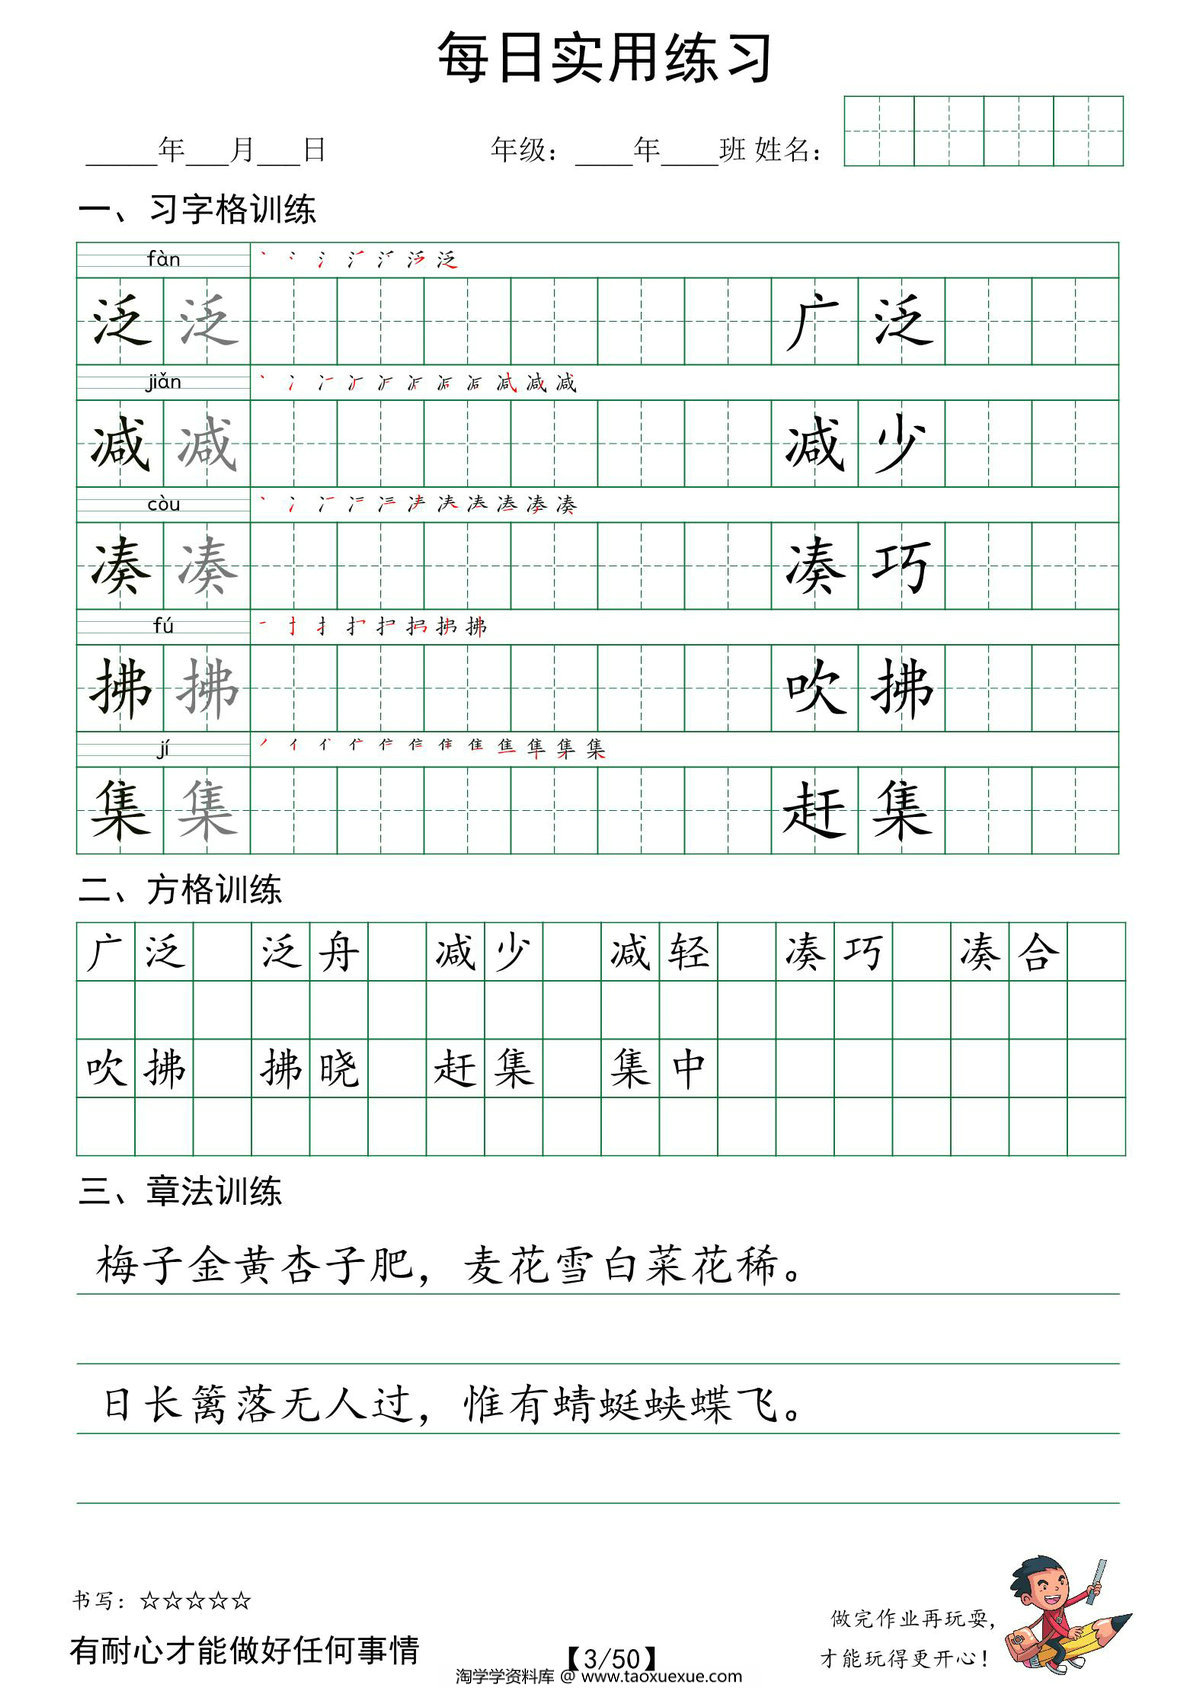 每日实用练习
_____年___月___日 年级：____年____班 姓名：
一、习字格训练
fàn
泛 泛 广 泛
jiǎn
减 减 减 少
còu
凑 凑 凑 巧
fú
拂 拂 吹 拂
jí
集 集 赶 集
二、方格训练
广泛 泛舟 减少 减轻 凑巧 凑合
吹拂 拂晓 赶集 集中
三、章法训练
梅子金黄杏子肥，麦花雪白菜花稀。
日长篱落无人过，惟有蜻蜓蛱蝶飞。
书写：☆☆☆☆☆
有耐心才能做好任何事情
【3/50】
做完作业再玩耍，
才能玩得更开心！
淘学学资料库 @ www.taoxuexue.com